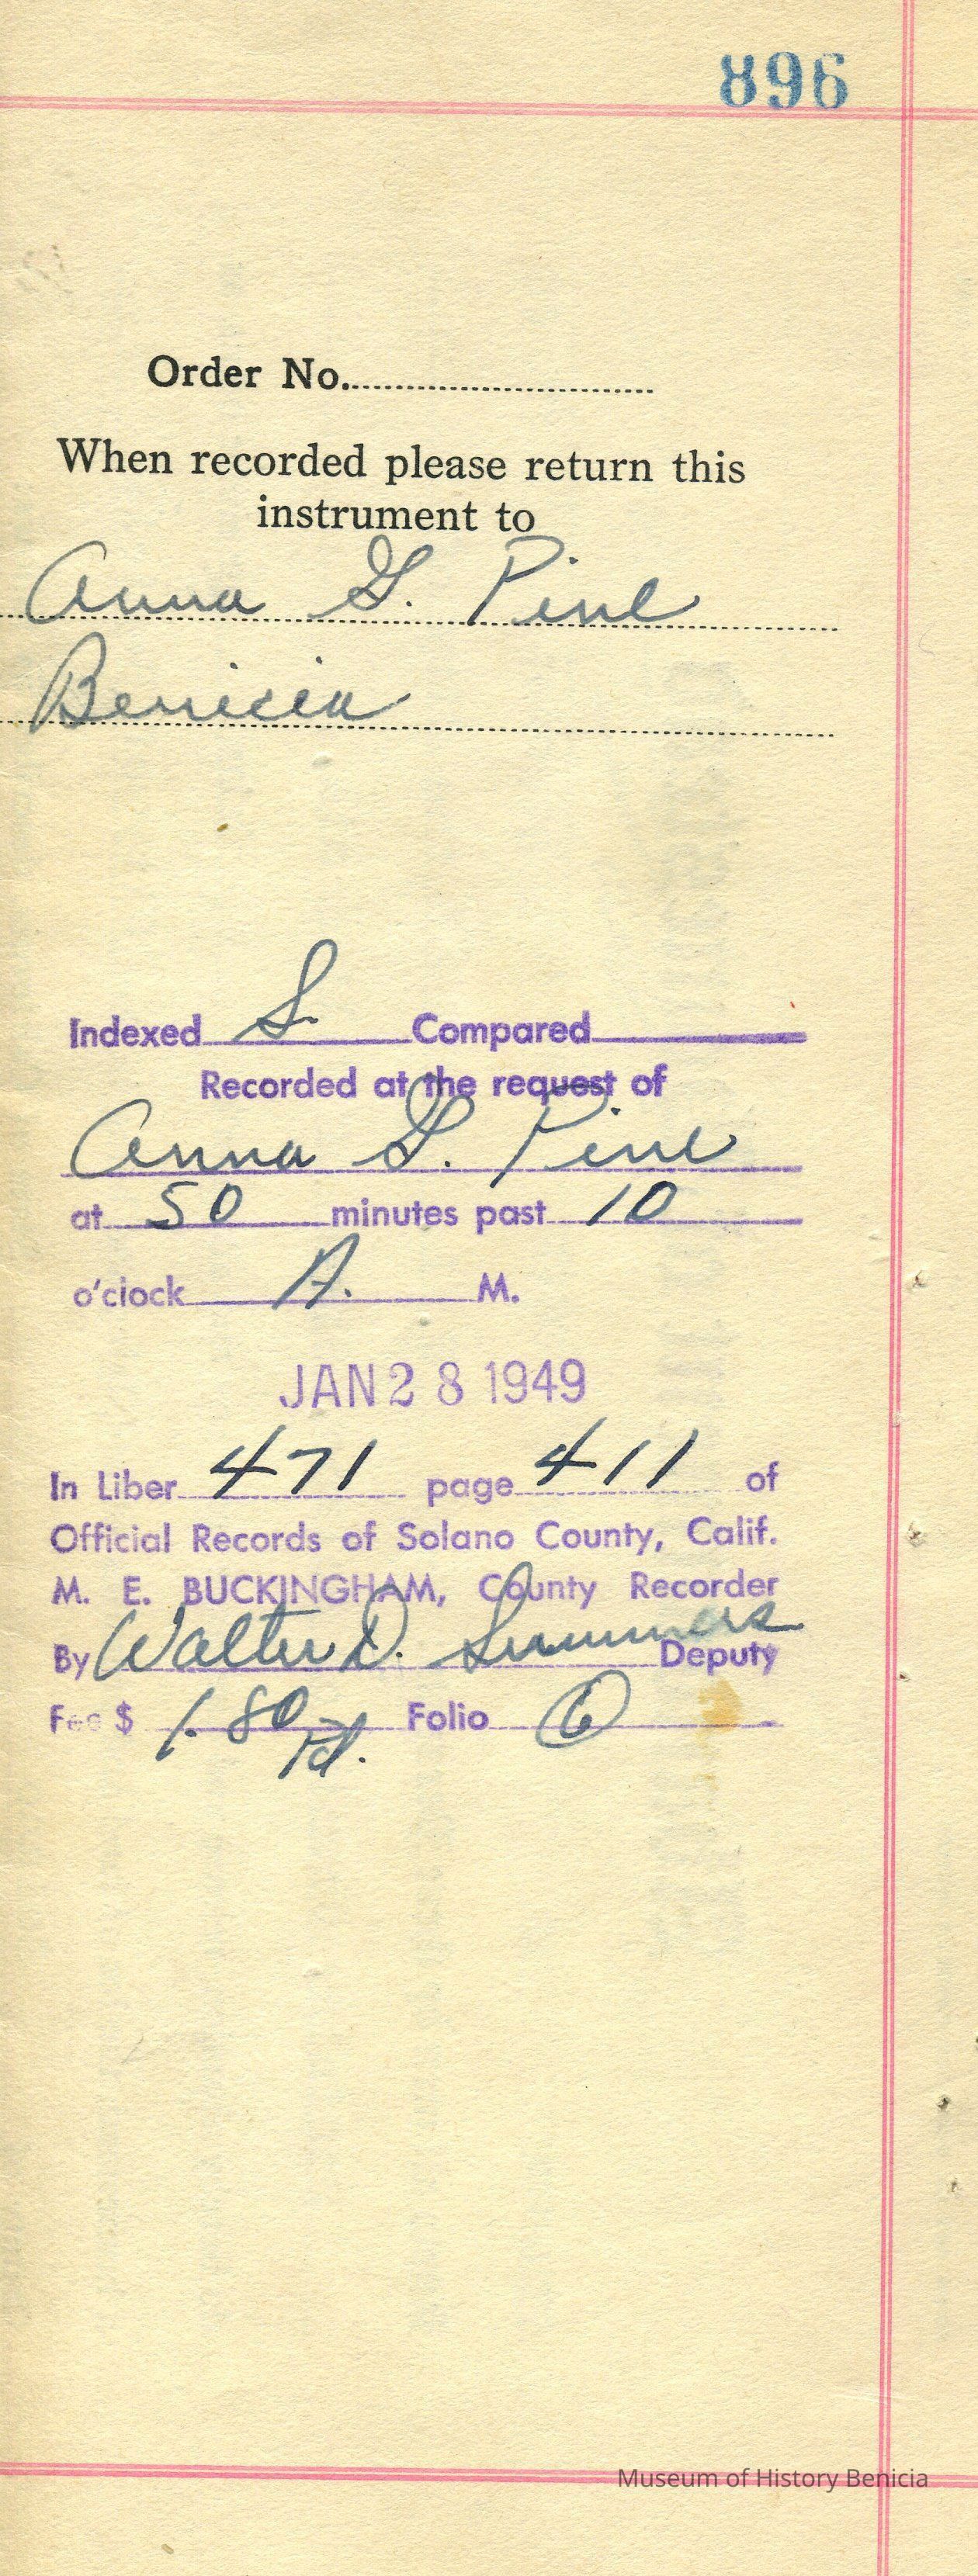 896
Order No.
When recorded please return this
instrument to
Anna G. Pine
Benicia
Indexed S. Compared
Recorded at the request of
Anna G. Pine
at 50 minutes past 10
o'clock A. M.
JAN 28 1949
In Liber 471 page 411 of
Official Records of Solano County, Calif.
M. E. BUCKINGHAM, County Recorder
By Walter D. Summers Deputy
Fee $ 1.80 Pd. Folio 6
Museum of History Benicia